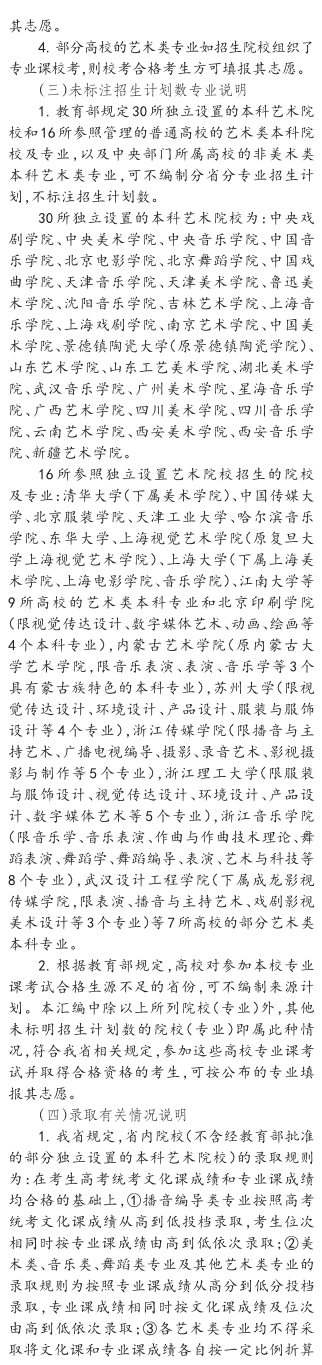 其志愿。
4. 部分高校的艺术类专业如招生院校组织了
专业课校考,则校考合格考生方可填报其志愿。
(三)未标注招生计划数专业说明
1. 教育部规定30所独立设置的本科艺术院
校和16所参照管理的普通高校的艺术类本科院
校及专业,以及中央部门所属高校的非美术类
本科艺术类专业,可不编制分省分专业招生计
划,不标注招生计划数。
30所独立设置的本科艺术院校为:中央戏
剧学院、中央美术学院、中央音乐学院、中国音
乐学院、北京电影学院、北京舞蹈学院、中国戏
曲学院、天津音乐学院、天津美术学院、鲁迅美
术学院、沈阳音乐学院、吉林艺术学院、上海音
乐学院、上海戏剧学院、南京艺术学院、中国美
术学院、景德镇陶瓷大学(原景德镇陶瓷学院)、
山东艺术学院、山东工艺美术学院、湖北美术学
院、武汉音乐学院、广州美术学院、星海音乐学
院、广西艺术学院、四川美术学院、四川音乐学
院、云南艺术学院、西安美术学院、西安音乐学
院、新疆艺术学院。
16所参照独立设置艺术院校招生的院校
及专业:清华大学(下属美术学院)、中国传媒大
学、北京服装学院、天津工业大学、哈尔滨音乐
学院、东华大学、上海视觉艺术学院(原复旦大
学上海视觉艺术学院)、上海大学(下属上海美
术学院、上海电影学院、音乐学院)、江南大学等
9所高校的艺术类本科专业和北京印刷学院
(限视觉传达设计、数字媒体艺术、动画、绘画等
4个本科专业),内蒙古艺术学院(原内蒙古大
学艺术学院,限音乐表演、表演、音乐学等3个
具有蒙古族特色的本科专业),苏州大学(限视
觉传达设计、环境设计、产品设计、服装与服饰
设计等4个专业),浙江传媒学院(限播音与主
持艺术、广播电视编导、摄影、录音艺术、影视摄
影与制作等5个专业),浙江理工大学(限服装
与服饰设计、视觉传达设计、环境设计、产品设
计、数字媒体艺术等5个专业),浙江音乐学院
(限音乐学、音乐表演、作曲与作曲技术理论、舞
蹈表演、舞蹈学、舞蹈编导、表演、艺术与科技等
8个专业),武汉设计工程学院(下属成龙影视
传媒学院,限表演、播音与主持艺术、戏剧影视
美术设计等3个专业)等7所高校的部分艺术类
本科专业。
2. 根据教育部规定,高校对参加本校专业
课考试合格生源不足的省份,可不编制来源计
划。本汇编中除以上所列院校(专业)外,其他
未标明招生计划数的院校(专业)即属此种情
况,符合我省相关规定,参加这些高校专业课考
试并取得合格资格的考生,可按公布的专业填
报其志愿。
(四)录取有关情况说明
1. 我省规定,省内院校(不含经教育部批准
的部分独立设置的本科艺术院校)的录取规则
为:在考生高考统考文化课成绩和专业课成绩
均合格的基础上,①播音编导类专业按照高考
统考文化课成绩从高到低投档录取,考生位次
相同时按专业课成绩由高到低依次录取;②美
术类、音乐类、舞蹈类专业及其他艺术类专业的
录取规则为按照专业课成绩从高分到低分投档
录取,专业课成绩相同时按文化课成绩及位次
由高到低依次录取;③各艺术类专业均不得采
取将文化课和专业课成绩各自按一定比例折算